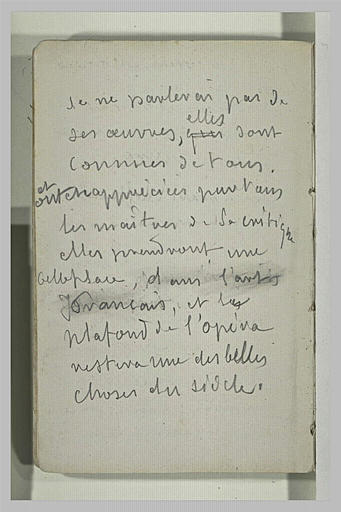 Je ne parlerai pas de
ses œuvres, elles sont
connues de tous.
et ont été appréciées par tous
les maîtres de la critique
elles prendront une
belle place, dans l'art
français, et le
plafond de l'opéra
restera une des belles
choses du siècle.